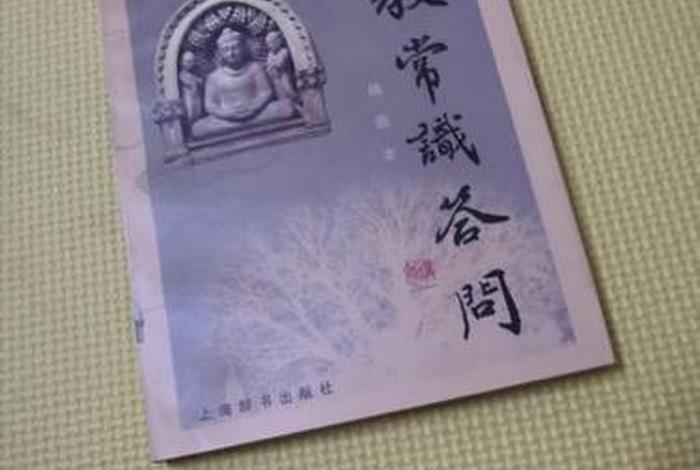 教常識答問
插图本
上海辞书出版社